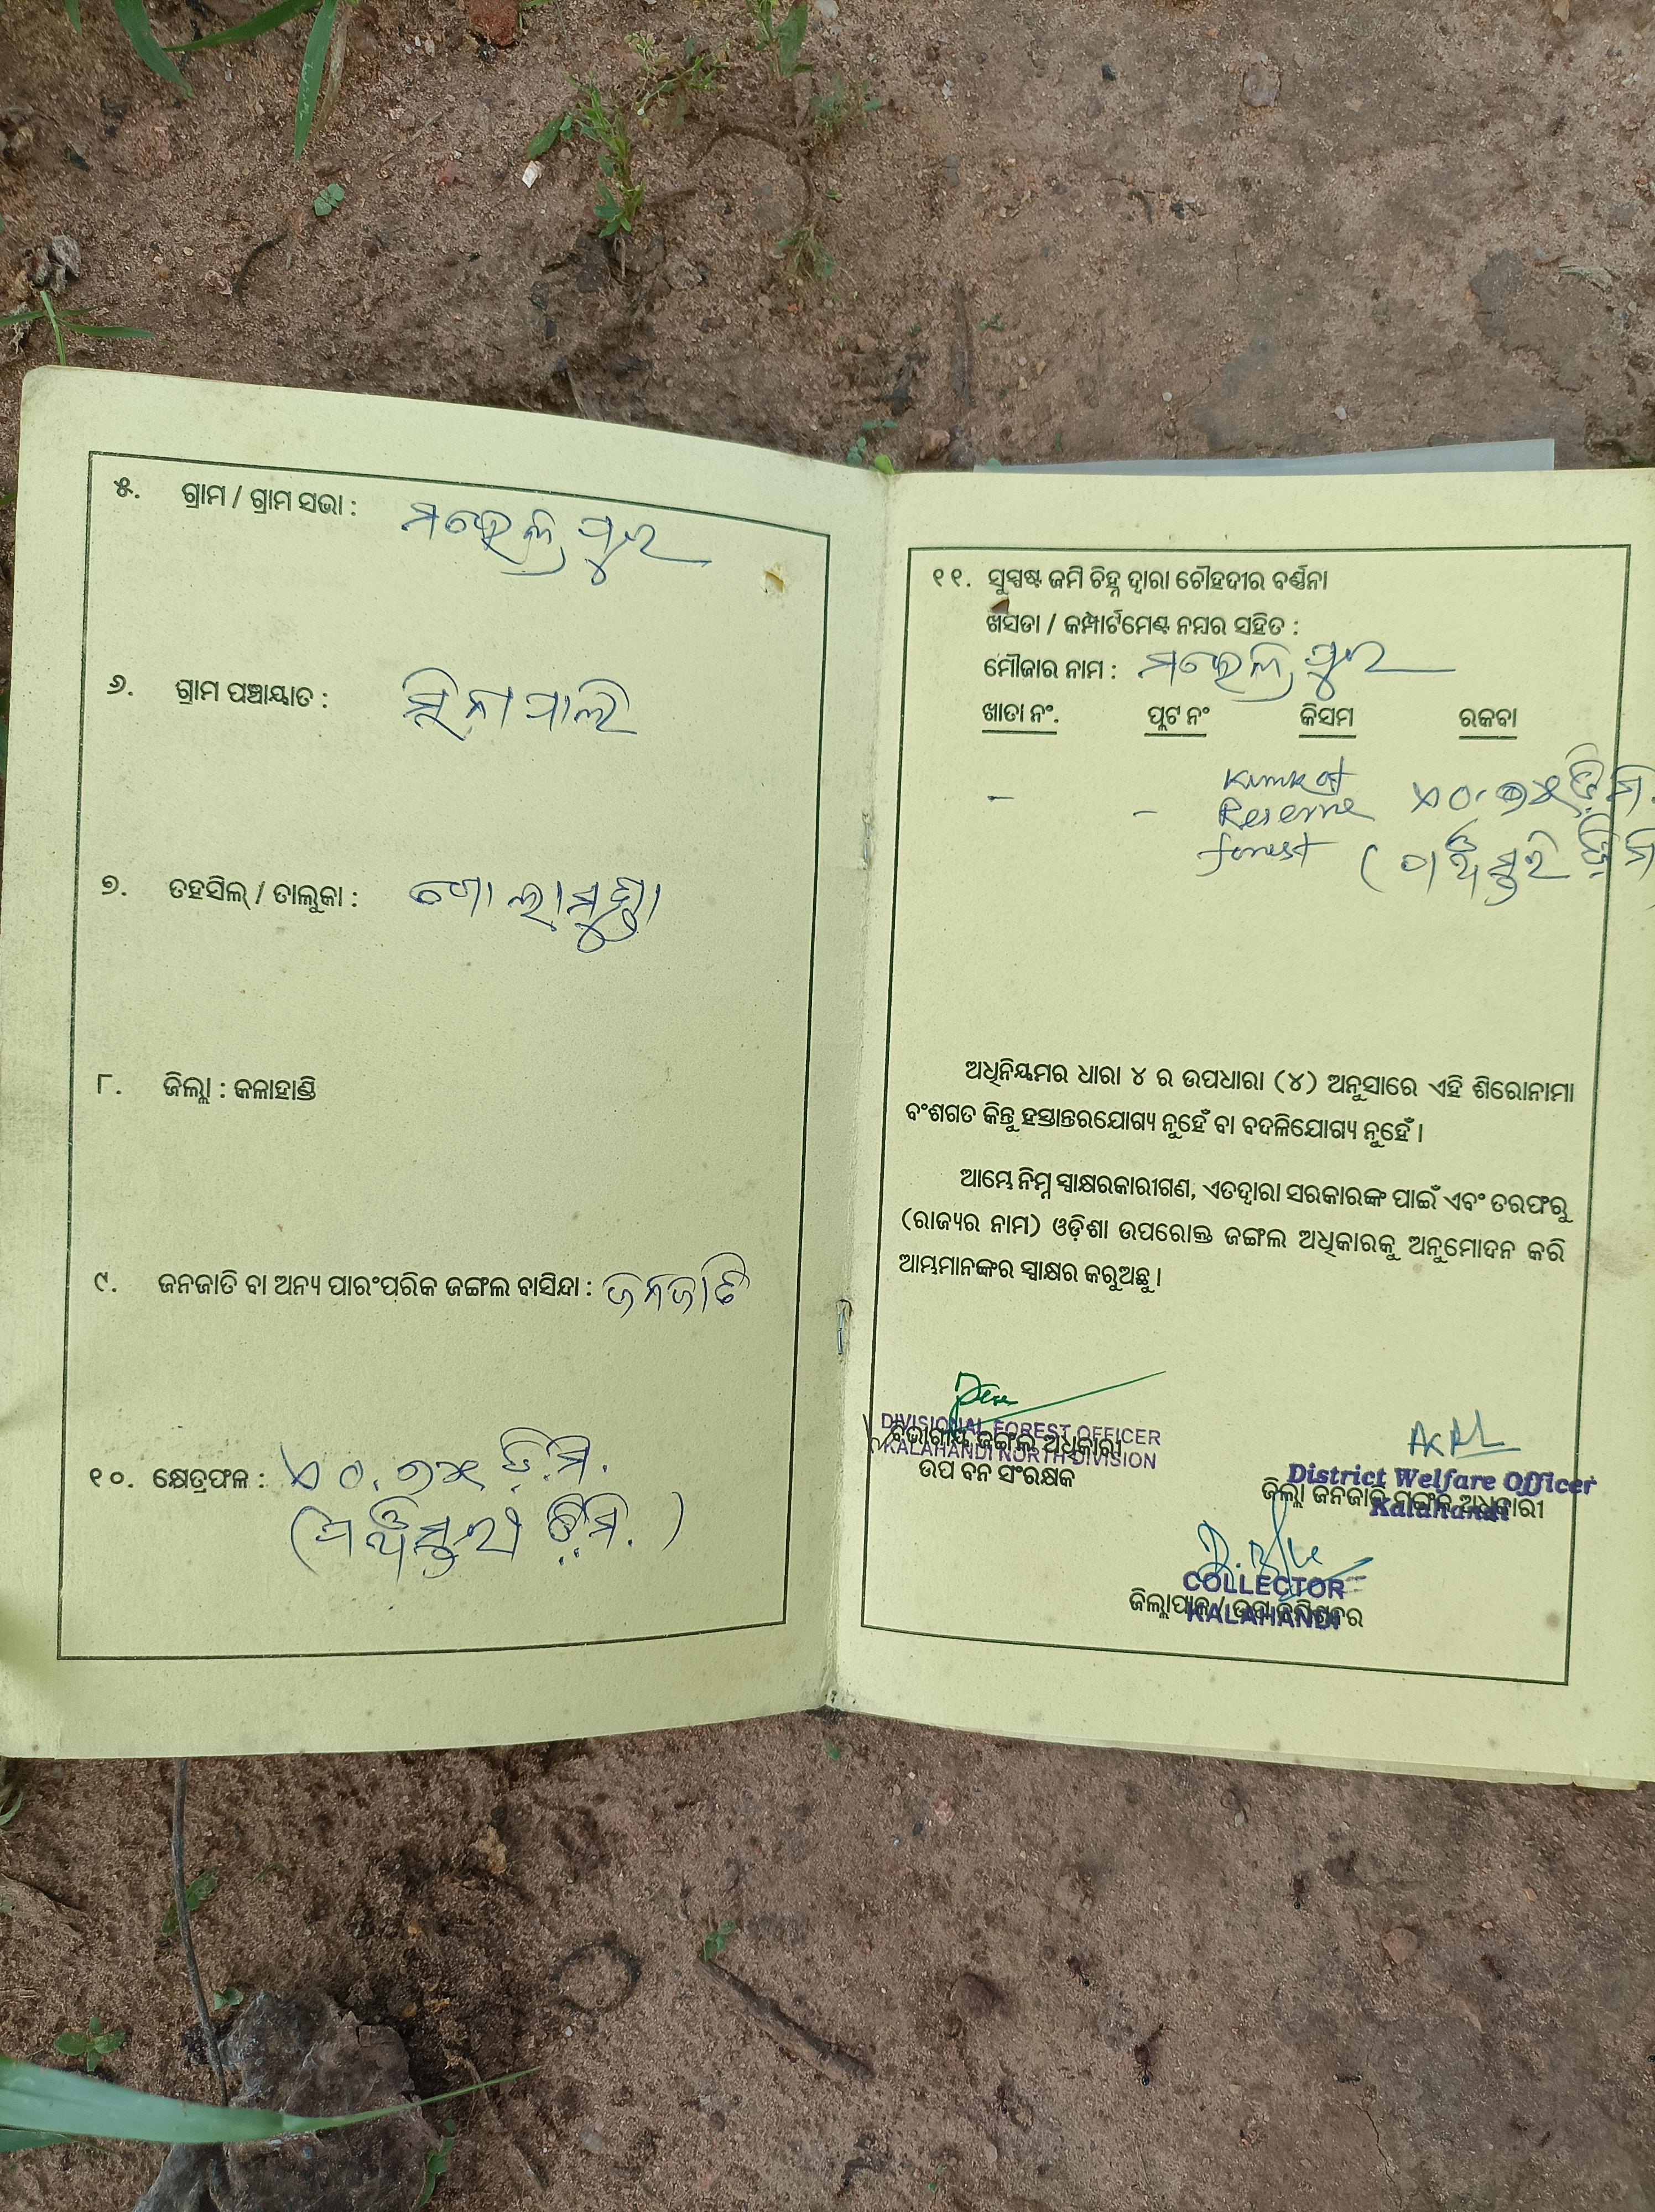 ୫. ଗ୍ରାମ / ଗ୍ରାମ ସଭା :
୬. ଗ୍ରାମ ପଞ୍ଚାୟାତ :
୭. ତହସିଲ୍ / ତାଲୁକା : ଗୋଲାମୁଣ୍ଡା
୮. ଜିଲ୍ଲା : କଳାହାଣ୍ଡି
୯. ଜନଜାତି ବା ଅନ୍ୟ ପାରଂପରିକ ଜଙ୍ଗଲ ବାସିନ୍ଦା : ଜନଜାତି
୧୦. କ୍ଷେତ୍ରଫଳ : ଡ଼ି.ମି.
୧୧. ସୁସ୍ପଷ୍ଟ ଜମି ଚିହ୍ନ ଦ୍ୱାରା ଚୌହଦୀର ବର୍ଣ୍ଣନା
ଖସଡା / କମ୍ପାର୍ଟମେଣ୍ଟ ନମ୍ବର ସହିତ :
ମୌଜାର ନାମ :
ଖାତା ନଂ. ପ୍ଲଟ ନଂ କିସମ ରକବା
- -
Reserve
forest
ଅଧିନିୟମର ଧାରା ୪ ର ଉପଧାରା (୪) ଅନୁସାରେ ଏହି ଶିରୋନାମା
ବଂଶଗତ କିନ୍ତୁ ହସ୍ତାନ୍ତରଯୋଗ୍ୟ ନୁହେଁ ବା ବଦଳିଯୋଗ୍ୟ ନୁହେଁ ।
ଆମ୍ଭେ ନିମ୍ନ ସ୍ୱାକ୍ଷରକାରୀଗଣ, ଏତଦ୍ୱାରା ସରକାରଙ୍କ ପାଇଁ ଏବଂ ତରଫରୁ
(ରାଜ୍ୟର ନାମ) ଓଡ଼ିଶା ଉପରୋକ୍ତ ଜଙ୍ଗଲ ଅଧିକାରକୁ ଅନୁମୋଦନ କରି
ଆମ୍ଭମାନଙ୍କର ସ୍ୱାକ୍ଷର କରୁଅଛୁ ।
DIVISIONAL FOREST OFFICER
ବିଭାଗୀୟ ଜଙ୍ଗଲ ଅଧିକାରୀ
KALAHANDI NORTH DIVISION
ଉପ ବନ ସଂରକ୍ଷକ
District Welfare Officer
ଜିଲ୍ଲା ଜନଜାତି ମଙ୍ଗଳ ଅଧିକାରୀ
Kalahandi
COLLECTOR
ଜିଲ୍ଲାପାଳ /
KALAHANDI